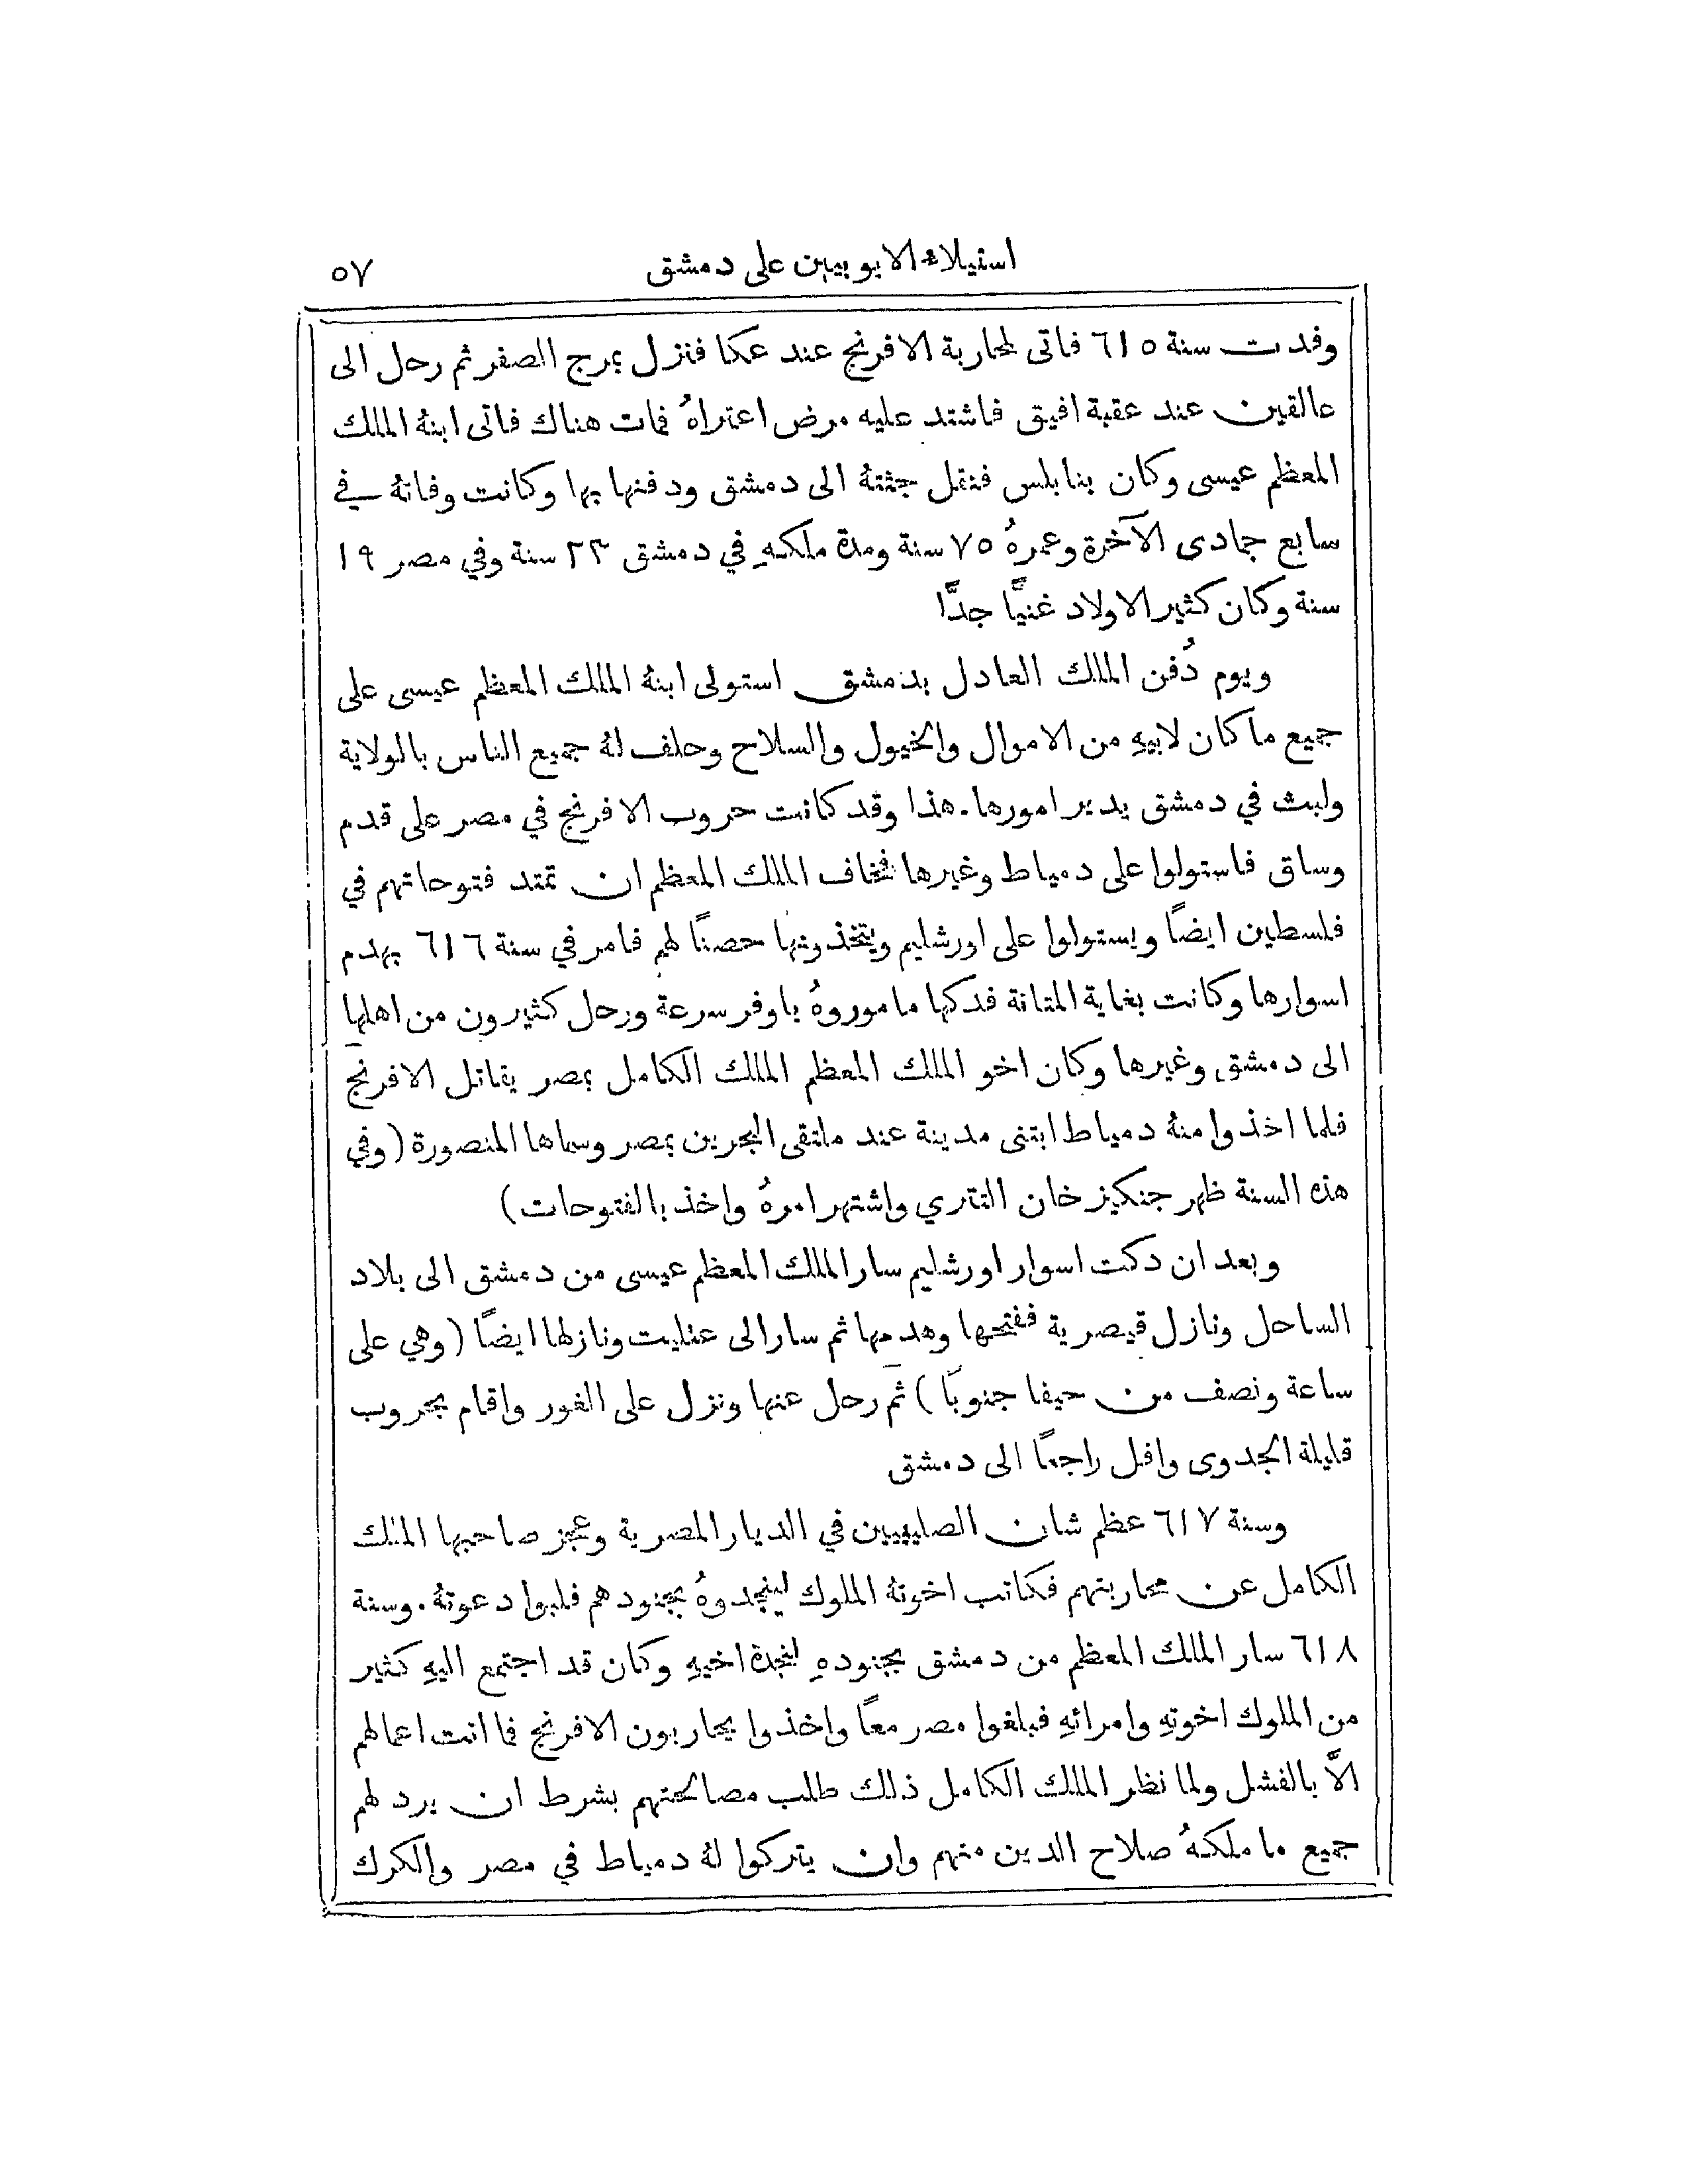 استيلاء الايوبيين على دمشق ٥٧
وفدت سنة ٦١٥ فاتى لمحاربة الافرنج عند عكا فنزل بمرج الصفر ثم رحل الى
عالقين عند عقبة افيق فاشتد عليه مرض اعتراهُ فمات هناك فاتى ابنهُ الملك
المعظم عيسى وكان بنابلس فنقل جثتهُ الى دمشق ودفنها بها وكانت وفاتهُ في
سابع جمادى الآخرة وعمرهُ ٧٥ سنة ومدة ملكهِ في دمشق ٢٣ سنة وفي مصر ١٩
سنة وكان كثير الاولاد غنيًّا جدًّا
ويوم دُفن الملك العادل بدمشق استولى ابنهُ الملك المعظم عيسى على
جميع ما كان لابيهِ من الاموال والخيول والسلاح وحلف لهُ جميع الناس بالولاية
ولبث في دمشق يدير امورها. هذا وقد كانت حروب الافرنج في مصر على قدم
وساق فاستولوا على دمياط وغيرها فخاف الملك المعظم ان تمتد فتوحاتهم في
فلسطين ايضًا ويستولوا على اورشليم ويتخذونها حصنًا لهم فامر في سنة ٦١٦ بهدم
اسوارها وكانت بغاية المتانة فدكها ماموروهُ باوفر سرعة ورحل كثيرون من اهلها
الى دمشق وغيرها وكان اخو الملك المعظم الملك الكامل بمصر يقاتل الافرنج
فلما اخذوا منهُ دمياط ابتنى مدينة عند ملتقى البحرين بمصر وسماها المنصورة (وفي
هذه السنة ظهر جنكيز خان التتري واشتهر امرهُ واخذ بالفتوحات)
وبعد ان دكت اسوار اورشليم سار الملك المعظم عيسى من دمشق الى بلاد
الساحل ونازل قيصرية ففتحها وهدمها ثم سار الى عتليت ونازلها ايضًا (وهي على
ساعة ونصف من حيفا جنوبًا) ثم رحل عنها ونزل على الغور واقام بحروب
قليلة الجدوى وافل راجعًا الى دمشق
وسنة ٦١٧ عظم شان الصليبيين في الديار المصرية وعجز صاحبها الملك
الكامل عن محاربتهم فكاتب اخوتهُ الملوك لينجدوهُ بجنودهم فلبوا دعوتهُ. وسنة
٦١٨ سار الملك المعظم من دمشق بجنودهِ لنجدة اخيهِ وكان قد اجتمع اليهِ كثير
من الملوك اخوتهِ وامرائهِ فبلغوا مصر معًا واخذوا يحاربون الافرنج فما اتت اعمالهم
الَّا بالفشل ولما نظر الملك الكامل ذلك طلب مصالحتهم بشرط ان يرد لهم
جميع ما ملكهُ صلاح الدين منهم وان يتركوا لهُ دمياط في مصر والكرك